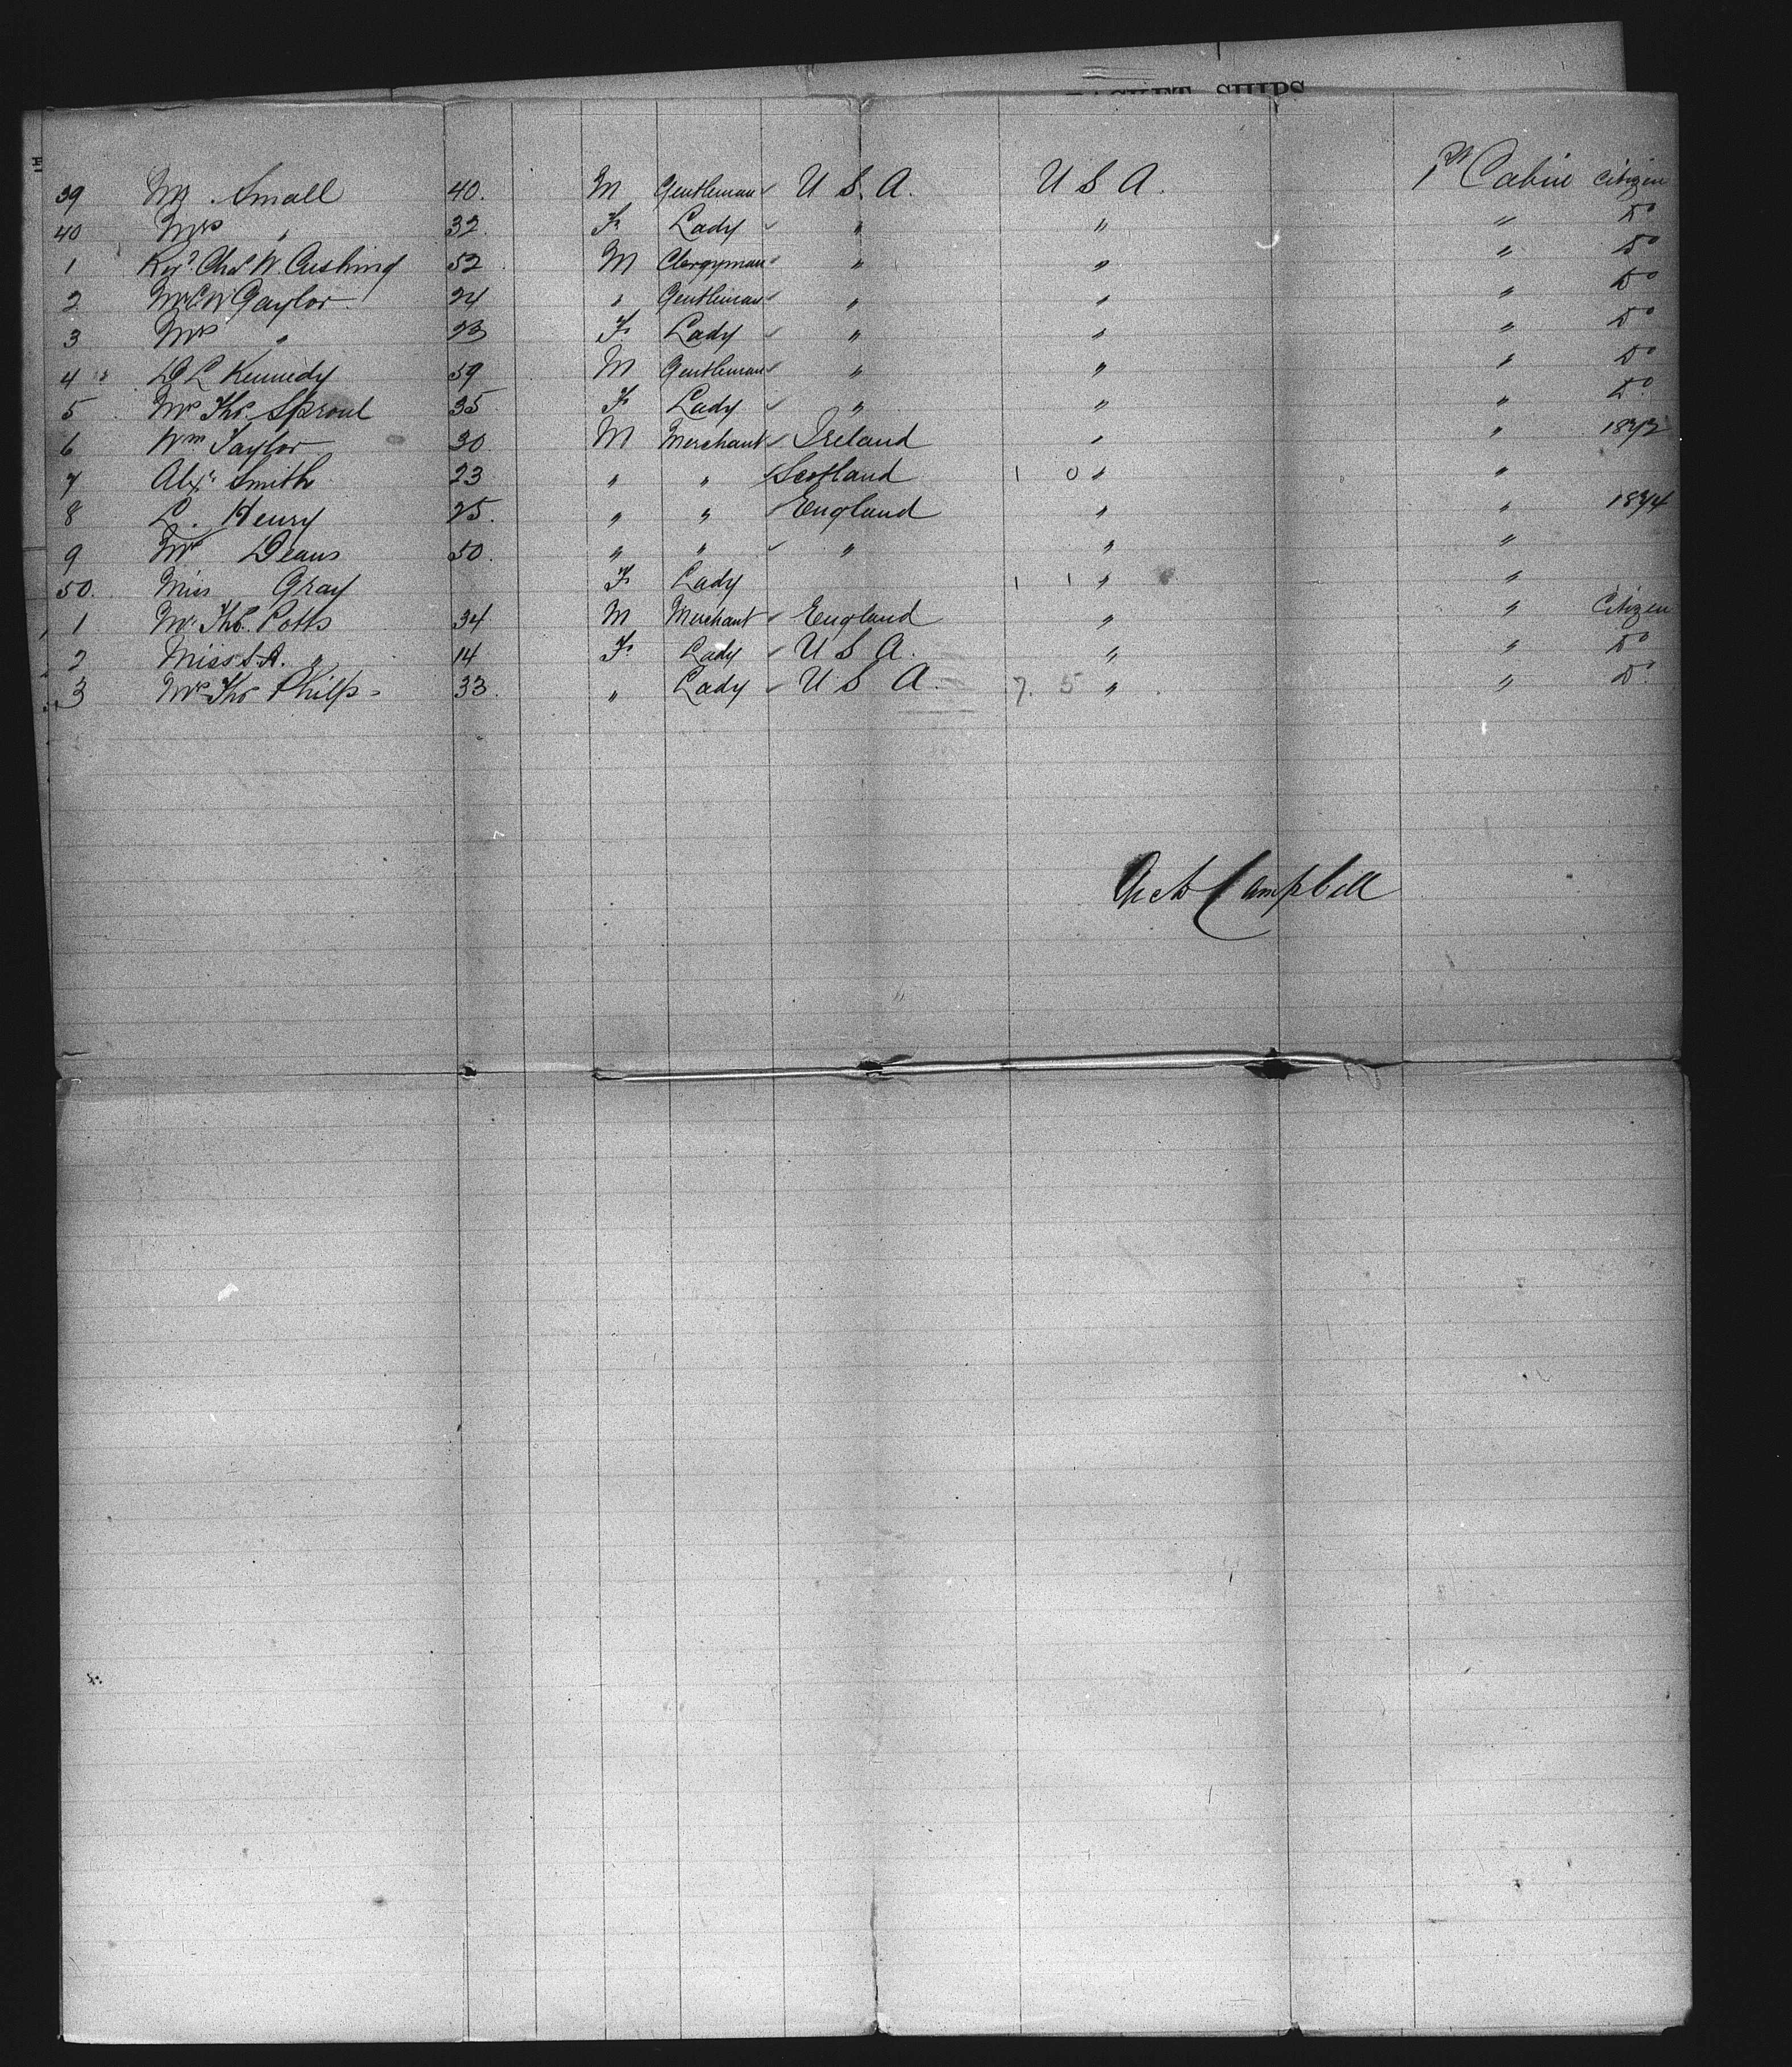 PACKET SHIPS
39 Mr. Small 40. M Gentleman U S. A. U S A. 1st Cabin Citizen
40 Mrs " 32. F. Lady " " " Do
1 Revd. Chas W. Cushing 52. M Clergyman " " " Do
2 Mr C W Gaylor 24 " Gentleman " " " Do
3 Mrs " 23 F. Lady " " " Do
4 D L Kennedy 59 M Gentleman " " " Do
5 Mrs Thos. Sproul 35. F. Lady " " " Do
6 Wm Taylor 30 M Merchant Ireland " "
7 Alexr Smith 23 " " Scotland 1 0 " "
8 L. Henry 25. " " England " " 1874
9 Mr Deans 50. " " " " "
50. Miss Gray F. Lady 1 1 " "
1 Mr. Thos. Potts 34 M Merchant England " " Citizen
2 Miss S. A. " 14 F. Lady U S A. " " Do
3 Mrs Thos Philps 33. " Lady U S A. 7. 5 " " Do
Arch Campbell